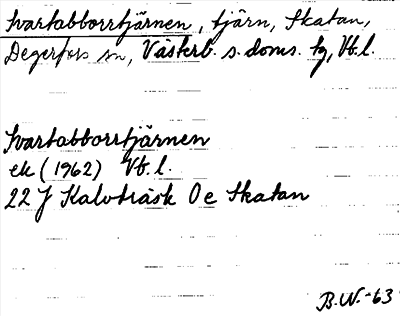 Svartabborrtjärnen, tjärn, Skatan,
Degerfors sn, Västerb. s. doms. tg, Vb.l.
Svartabborrtjärnen
ek (1962) Vb.l.
22 J Kalvträsk 0 e Skatan
B.W.-63